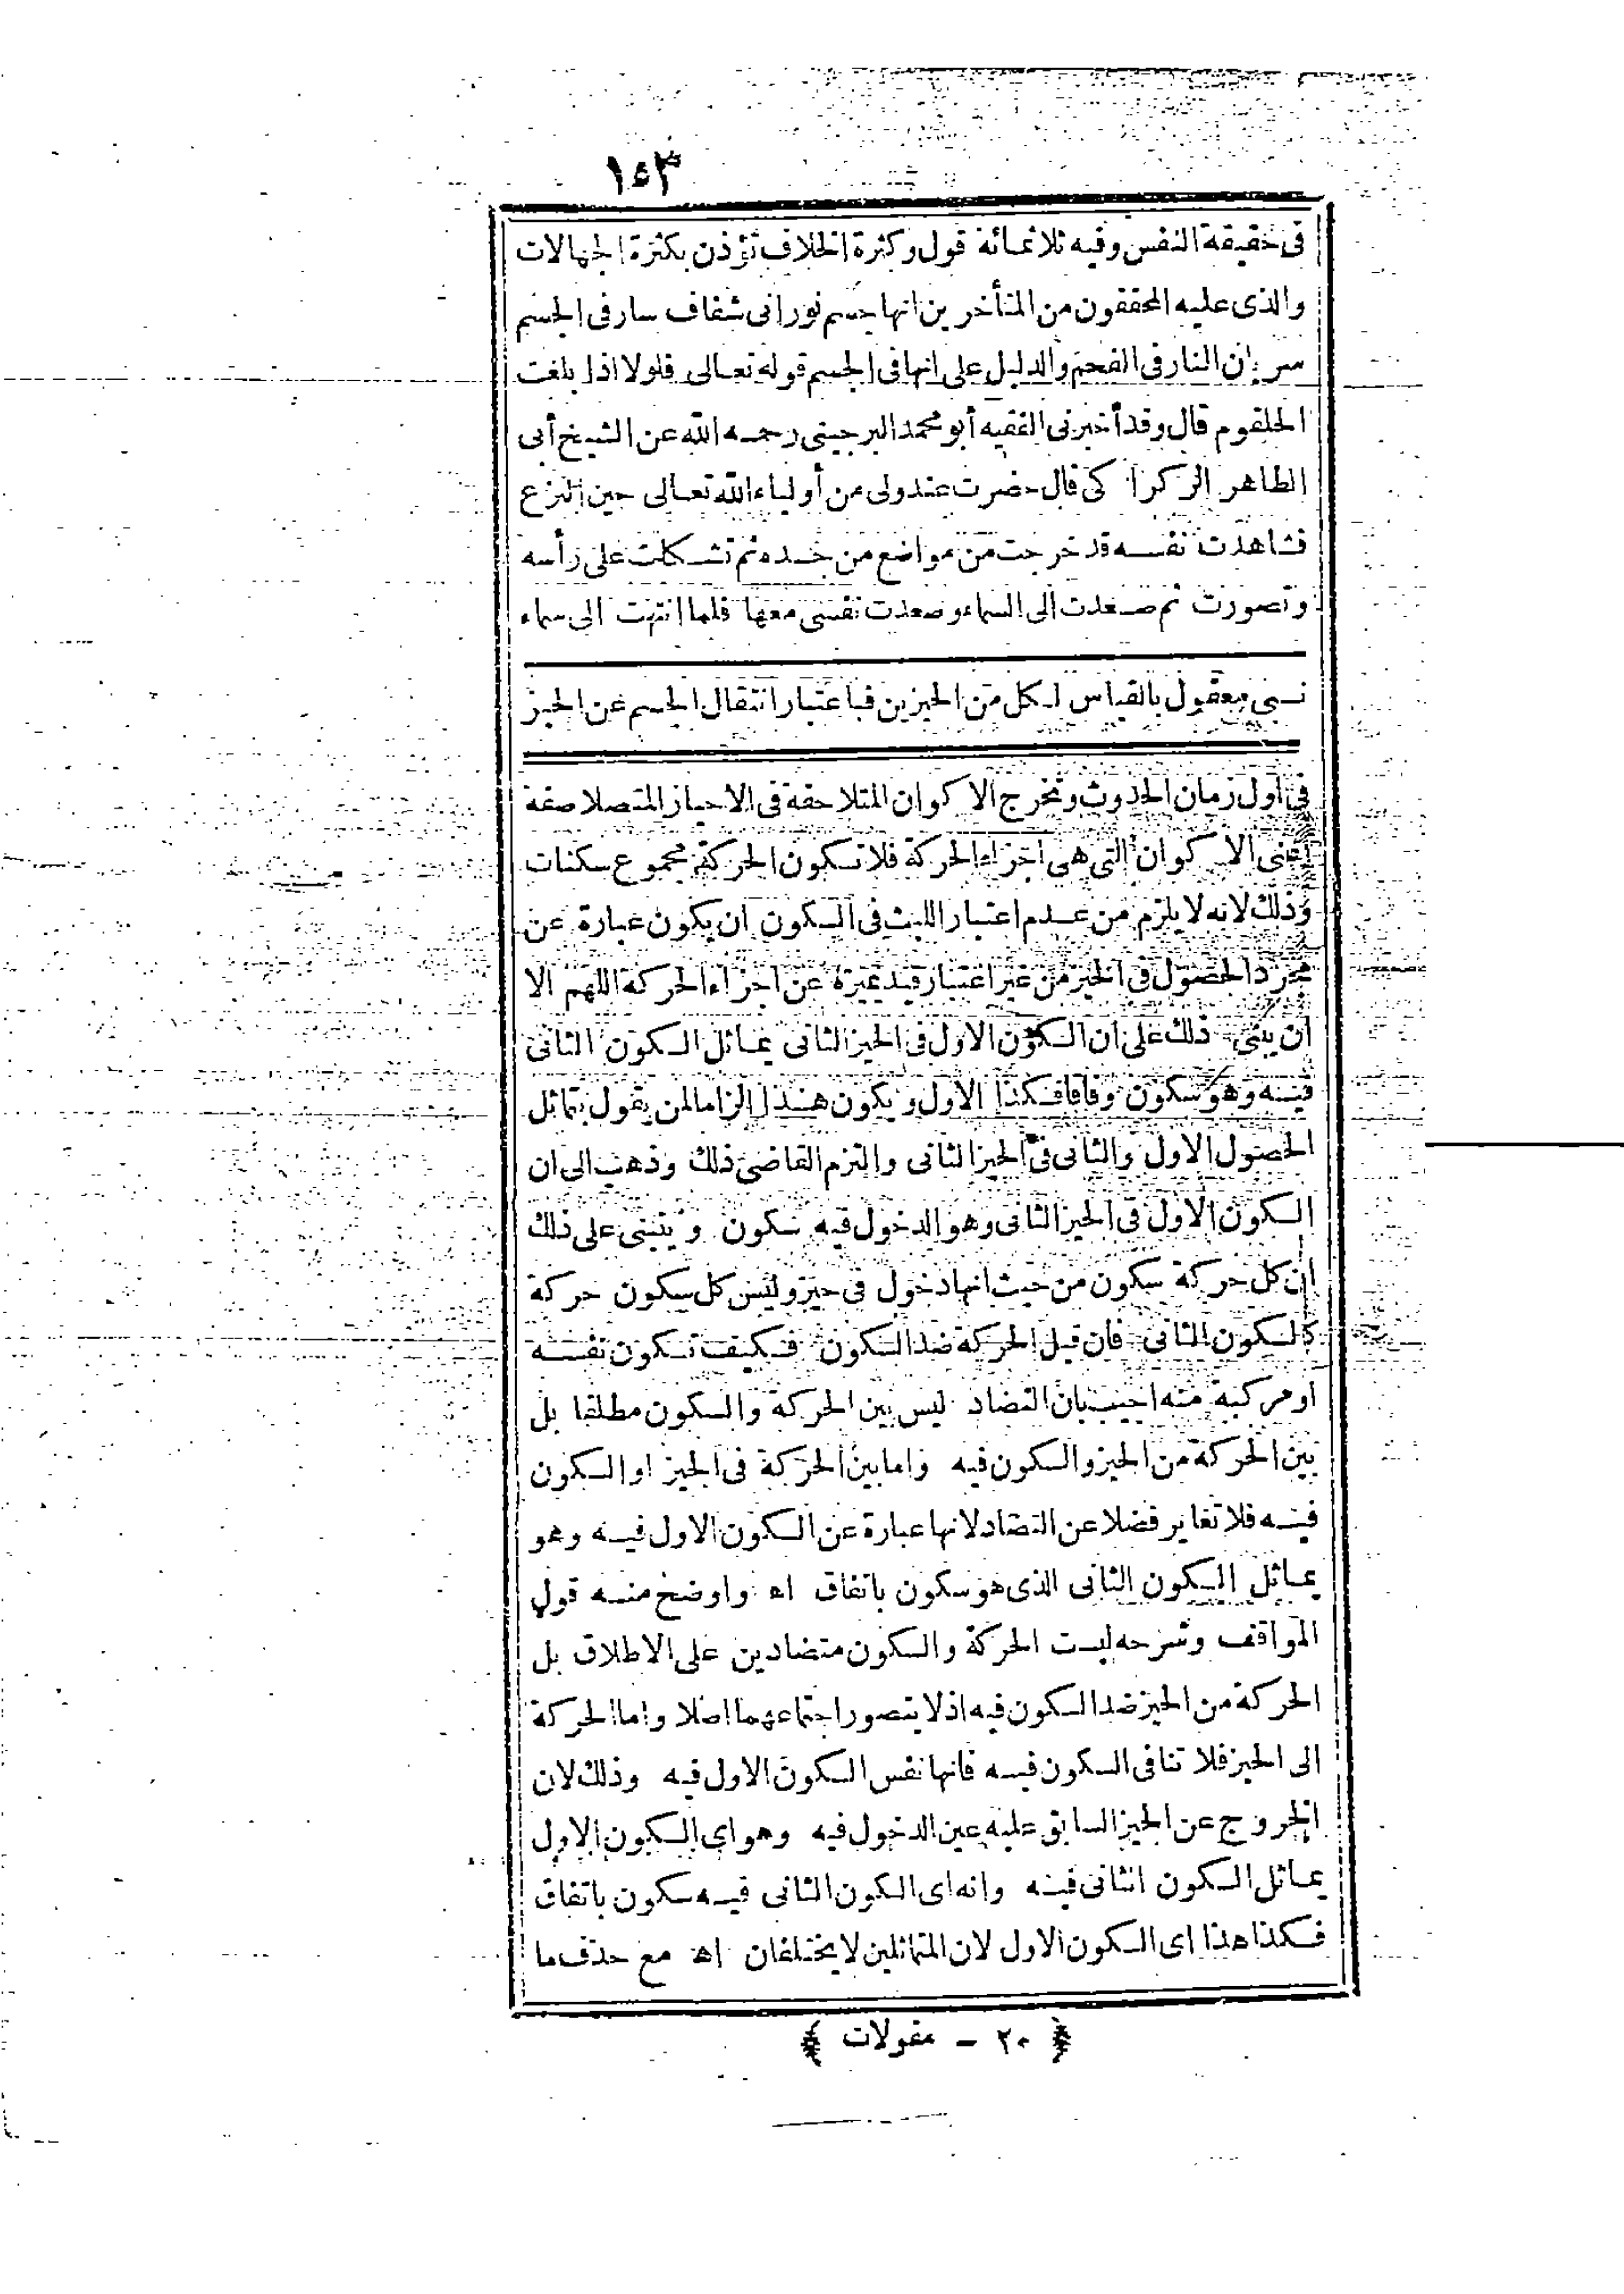 ١٥٣
فى حقيقة النفس وفيه ثلاثمائة قول وكثرة الخلاف تؤذن بكثرة الجهالات
والذى عليه المحققون من المتأخرين انها جسم نورانى شفاف سار فى الجسم
سريان النار فى الفحم والدليل على انها فى الجسم قوله تعالى فلولا اذا بلغت
الحلقوم قال وقد أخبرنى الفقيه أبو محمد البرجينى رحمه الله عن الشيخ أبى
الطاهر الركراكى قال حضرت عند ولى من أولياء الله تعالى حين النزع
فشاهدت نفسه قد خرجت من مواضع من جسده ثم تشكلت على رأسه
وتصورت ثم صعدت الى السماء وصعدت نفسى معها فلما انتهت الى سماء
نسبى معقول بالقياس لكل من الحيزين فباعتبار انتقال الجسم عن الحيز
فى اول زمان الحدوث وتخرج الاكوان المتلاحقة فى الاحياز المتصلا صفة
اعنى الاكوان التى هى اجزاء الحركة فلا تكون الحركة مجموع سكنات
وذلك لانه لا يلزم من عدم اعتبار اللبث فى السكون ان يكون عبارة عن
مجرد الحصول فى الحيز من غير اعتبار قيد يميزه عن اجزاء الحركة اللهم الا
ان يبنى ذلك على ان السكون الاول فى الحيز الثانى يماثل السكون الثانى
فيه وهو سكون وفاقا فكذا الاول ويكون هذا الزاما لمن يقول بتماثل
الحصول الاول والثانى فى الحيز الثانى والتزم القاضى ذلك وذهب الى ان
السكون الاول فى الحيز الثانى وهو الدخول فيه سكون ويتبنى على ذلك
ان كل حركة سكون من حيث انها دخول فى حيز وليس كل سكون حركة
كالسكون الثانى فان قيل الحركة ضد السكون فكيف تكون نفسه
او مركبة منه اجيب بان التضاد ليس بين الحركة والسكون مطلقا بل
بين الحركة من الحيز والسكون فيه واما بين الحركة فى الحيز او السكون
فيه فلا تغاير فضلا عن التضاد لانها عبارة عن السكون الاول فيه وهو
يماثل السكون الثانى الذى هو سكون باتفاق اه واوضح منه قول
المواقف وشرحه ليست الحركة والسكون متضادين على الاطلاق بل
الحركة من الحيز ضد السكون فيه اذ لا يتصور اجتماعهما اصلا واما الحركة
الى الحيز فلا تنافى السكون فيه فانها نفس السكون الاول فيه وذلك لان
الخروج عن الحيز السابق عليه عين الدخول فيه وهو اى السكون الاول
يماثل السكون الثانى فيه وانه اى الكون الثانى فيه سكون باتفاق
فكذا هذا اى السكون الاول لان المتماثلين لا يختلفان اه مع حذف ما
﴿ ٢٠ - مقولات ﴾